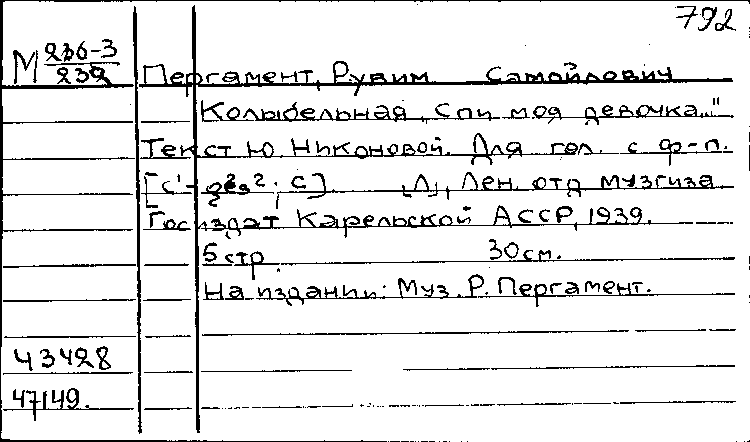 792
М 236-3/232 Пергамент, Рувим Самойлович
Колыбельная „Спи моя девочка."
Текст Ю. Никоновой. Для гол. с ф-п.
[c¹- ; c] [Л], Лен. отд музгиза.
Госиздат Карельской АССР, 1939.
5 стр. 30 см.
На издании: Муз. Р. Пергамент.
43428
47149.